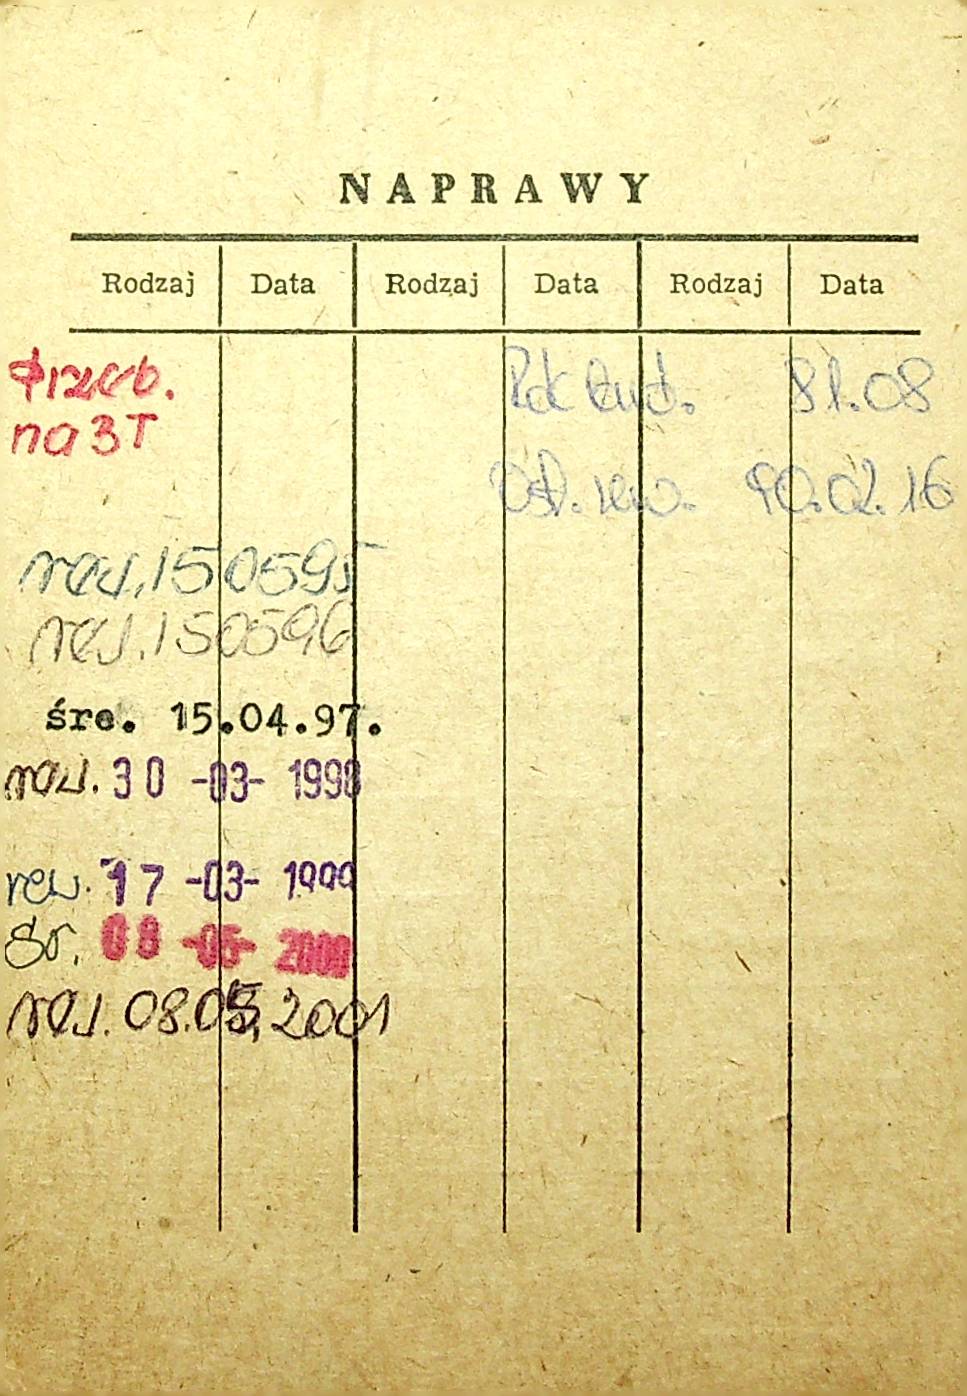 NAPRAWY
Rodzaj Data Rodzaj Data Rodzaj Data
Przeb.
na 3T
Rok bud. 81.08
Ost. rew. 90.02.16
rew. 150595
rew. 150596
śre. 15.04.97.
rew. 30 -03- 1998
rew. 17 -03- 1999
śr. 08 -05- 2000
rew. 08.05.2001